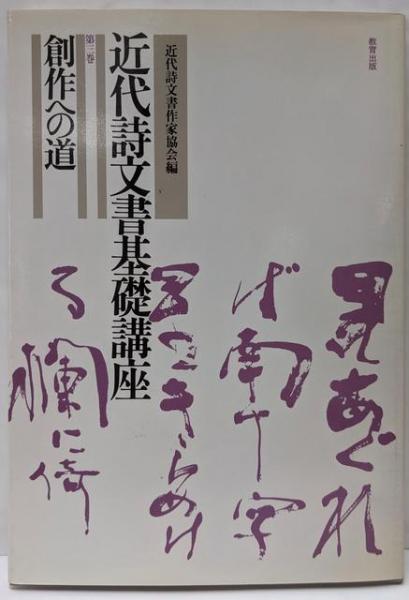 教育出版
近代詩文書作家協会編
近代詩文書基礎講座
第三巻
創作への道
見あぐれ
ば南十字
星またゝけ
る欄に倚